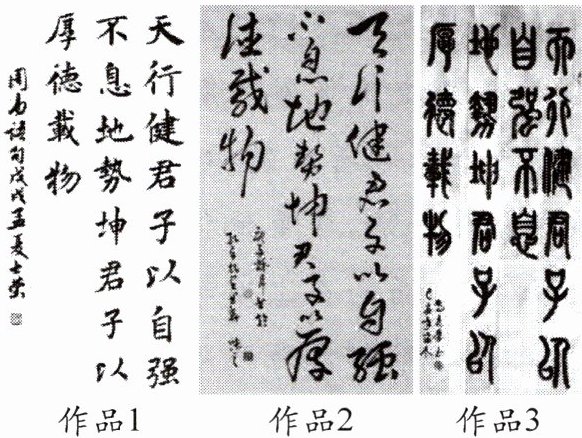 天行健君子以自强
不息地勢坤君子以
厚德載物
周易語句戊戌孟夏
天行健君子以自强
不息地勢坤君子以厚
德載物
天行健君子以
自强不息
地勢坤君子以
厚德載物
作品1
作品2
作品3